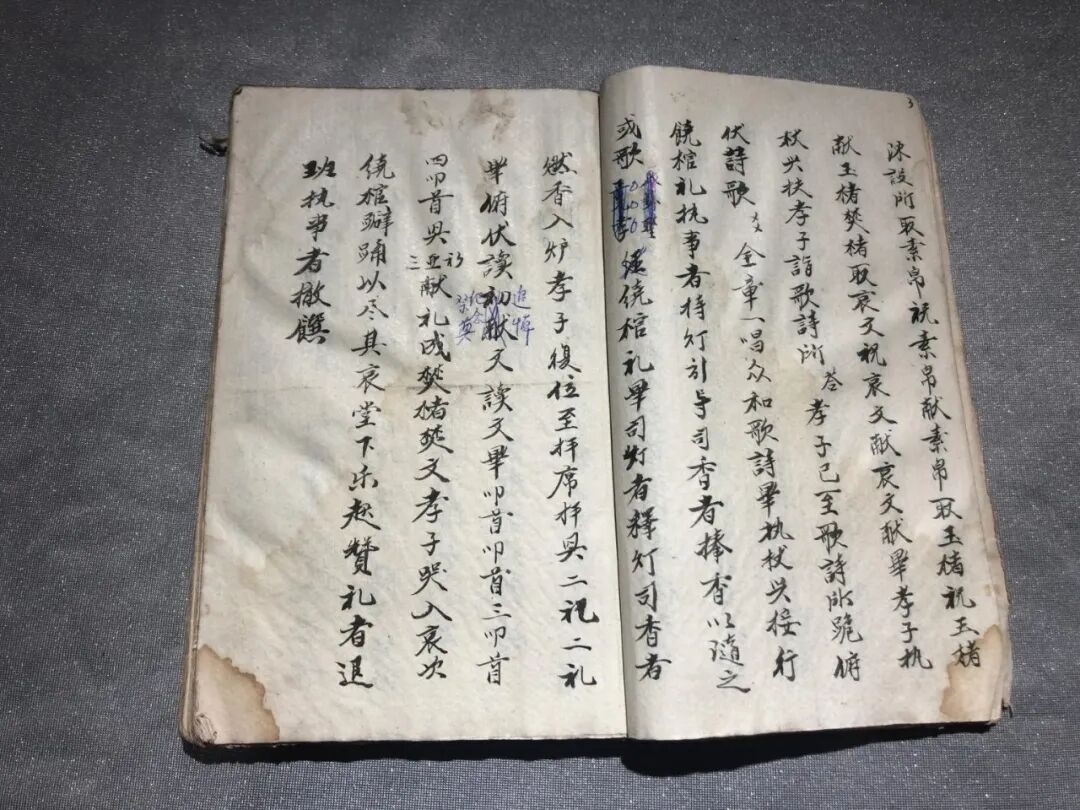 3
陳設所取素帛祝素帛献素帛取玉楮祝玉楮
献玉楮焚楮取哀文祝哀文献哀文献畢孝子执
杖兴扶孝子詣歌詩所 答 孝子已至歌詩所跪俯
伏詩歌 金章一唱众和歌詩畢执杖兴接行
饒棺礼执事者持灯引导司香者捧香以随之
或歌 绕棺礼畢司灯者釋灯司香者
燃香入炉孝子復位至拝席拝具二祝二礼
畢俯伏讀初献文讀文畢叩首叩首三叩首
追悼
祭奠
四叩首兴 献礼成焚楮焚文孝子哭入哀次
三亚初
绕棺擗踊以尽其哀堂下乐起赞礼者退
班执事者撤饌